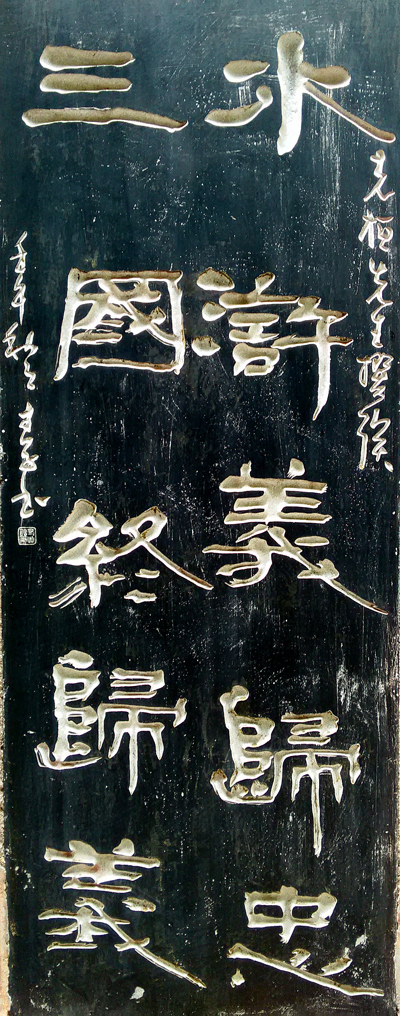 先生撰
水滸義歸忠
三國終歸義